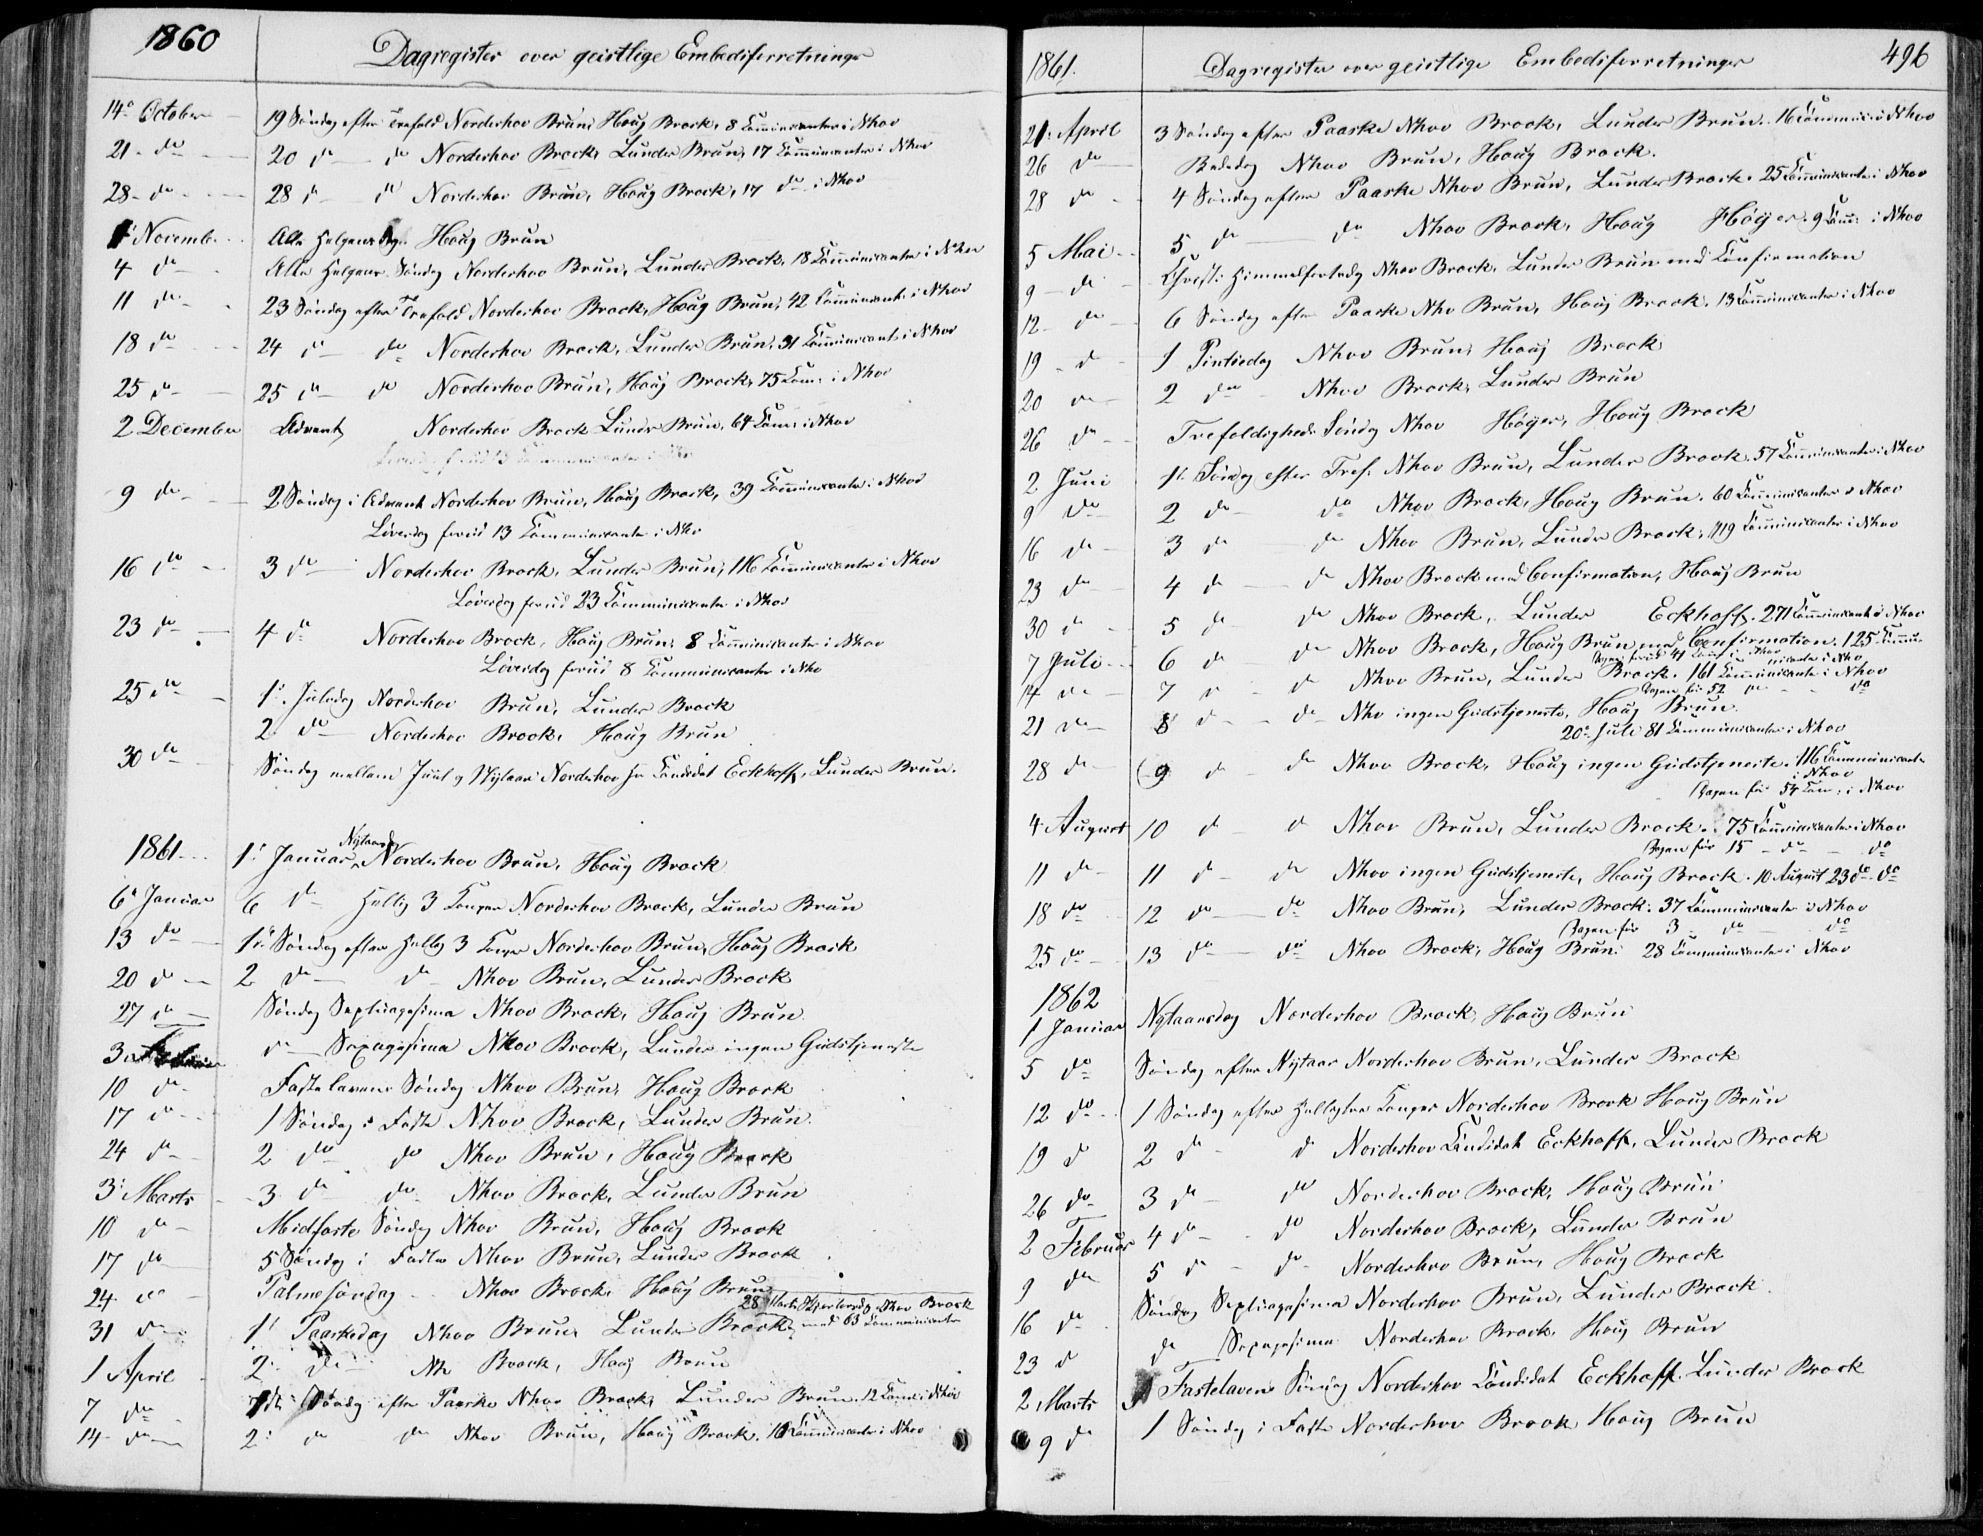 1860
Dagregister over geistlige Embedsforretninger
14de October 19 Søndag efter Trefold Norderhov Brun, Houg Brock, 8 Communicanter i Nhov
21 - do 20 do do Norderhov Brock, Lunder Brun, 17 Communicanter i Nhov
28 - do 28 do do Norderhov Brun, Houg Brock, 17 do i Nhov
1 Novemb. Alle Helgensdag Houg Brun
4 do Alle Helgens Søndag Norderhov Brun, Lunder Brock, 18 Communicanter i Nhov
11 do 23 Søndag efter Trefold Norderhov Brock, Houg Brun, 42 Communicant. i Nhov
18 do 24 do do Norderhov Brock, Lunder Brun, 31 Communicant. i Nhov
25 do 25 do do Norderhov Brun, Houg Brock, 75 Com: i Nhov
2 December Advent Norderhov Brock Lunder Brun, 64 Com: i Nhov
9 do 2 Søndag i Advent Norderhov Brun, Houg Brock, 39 Communicanter i Nhov
Løverdag forud 13 Communicanter i Nhov
16 do 3 do Norderhov Brock, Lunder Brun, 116 Communicanter i Nhov
Løverdag forud 23 Communicanter i Nhov
23 do 4 do Norderhov Brock, Houg Brun, 8 Communicanter i Nhov
Løverdag forud 8 Communicanter i Nho
25 do 1. Juledag Norderhov Brun, Lunder Brock
2 do Norderhov Brock, Houg Brun
30 do Søndag mellem Juul og Nytaar Norderhov Hr Candidat Eckhoff, Lunder Brun.
1861 1. Januar Nytaarsdag Norderhov Brun, Houg Brock
6 Januar 6 do Hellig 3 Konger Norderhov Brock, Lunder Brun
13 do 1. Søndag efter Hellig 3 Konger Norderhov Brun, Houg Brock
20 do 2 do do Nhov Brun, Lunder Brock
27 do Søndag Septuagesima Nhov Brock, Houg Brun
3 Februar do Sexagesima Nhov Brock, Lunder ingen Gudstjeneste
10 do Fastelavens Søndag Nhov Brun, Houg Brock
17 do 1 Søndag i Faste Nhov Brock, Lunder Brun.
24 do 2 do do Nhov Brun, Houg Brock
3 Marts 3 do do Nhov Brock, Lunder Brun
10 do Midfaste Søndag Nhov Brun, Houg Brock
17 do 5 Søndag i Fasten Nhov Brun, Lunder Brock
24 do Palmesøndag Nhov Brock, Houg Brun
28 Marts Skjertorsdag Nhov Brock
31 do 1. Paaskedag Nhov Brun, Lunder Brock, med 63 Communicanter
1 April 2. do Nh Brock, Houg Brun
7 do 1ste Søndag efter Paaske Nhov Brock, Lunder Brun. 12 Com: i Nhov
14 do 2. do do Nhov Brun, Houg Brock. 16 Communicanter i Nhov
1861.
Dagregister over geistlige Embedsforretninger
496
21. April 3 Søndag efter Paaske Nhov Brock, Lunder Brun. 16 Communic. i Nhov
26 do Bededag Nhov Brun, Houg Brock.
28 do 4 Søndag efter Paaske Nhov Brun, Lunder Brock. 25 Communicanter i Nhov
5 Mai 5 do do Nhov Brock, Houg Höyer. 9 Com: i Nhov
9 do Christi Himmelfartsdag Nhov Brock, Lunder Brun med Confirmation
12 do 6 Søndag efter Paaske Nho Brun, Houg Brock. 13 Communicanter i Nhov
19 do 1 Pintsedag Nhov Brun, Houg Brock
20 do 2 do Nhov Brock, Lunder Brun
26 do Trefoldigheds Søndag Nhov Höyer, Houg Brock
2 Juni 1. Søndag efter Tref. Nhov Brun, Lunder Brock. 57 Communicanter i Nhov
9 do 2 do do Nhov Brock, Houg Brun. 60 Communicanter i Nhov
16 do 3 do do Nhov Brun, Lunder Brock, 119 Communicanter i Nhov
23 do 4 do do Nhov Brock med Confirmation, Houg Brun
30 do 5 do do Nhov Brock, Lunder Eckhoff. 271 Communicant. i Nhov
7 Juli 6 do do Nhov Brock, Houg Brun med Confirmation. 125 Commu-
Dagen forud 41 Com: i Nhov
nicanter i Nho
14 do 7 do do Nhov Brun, Lunder Brock. 161 Communicanter i Nhov
Dagen før 52 do do
21 do 8 do do Nho ingen Gudstjeneste, Houg Brun.
20de Juli 81 Communicanter i Nhov
28 do 9 do do Nhov Brock, Houg ingen Gudstjeneste. 116 Communicanter
i Nhov
Dagen før 54 Com: i Nhov
4 August 10 do do Nhov Brun, Lunder Brock. 75 Communicanter i Nhov
Dagen før 15 do do
11 do 11 do do Nhov ingen Gudstjeneste, Houg Brock. 10 August 23 do do
18 do 12 do do Nhov Brun, Lunder Brock. 37 Communicanter i Nhov
Dagen før 3 do do
25 do 13 do do Nhov Brock, Houg Brun. 28 Communicanter i Nhov
1862
1 Januar Nytaarsdag Norderhov Brock, Houg Brun
5 do Søndag efter Nytaar Norderhov Brun, Lunder Brock
12 do 1 Søndag efter Helligtre Konger Norderhov Brock Houg Brun
19 do 2 do do Norderhov Candidat Eckhoff, Lunder Brock
26 do 3 do do Norderhov Brock, Houg Brun
2 Februar 4 do do Norderhov Brock, Lunder Brun
9 do 5 do do Norderhov Brun, Houg Brock
16 do Søndag Septuagesima Norderhov Brun, Lunder Brock.
23 do do Sexagesima Norderhov Brock, Houg Brun
2 Marts Fastelavens Søndag Norderhov Candidat Eckhoff Lunder Brock
9 do 1 Søndag i Faste Norderhov Brock Houg Brun